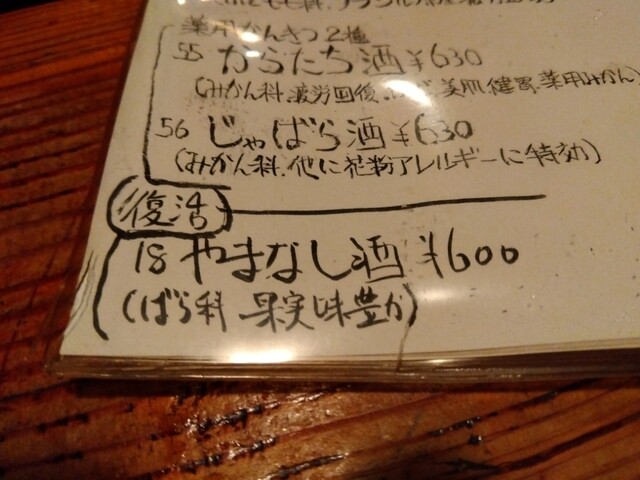 薬用かんきつ2種
55 からたち酒 ¥630
(みかん科.疲労回復.美肌.健胃.薬用みかん)
56 じゃばら酒 ¥630
(みかん科.他に花粉アレルギーに特効)
復活
18 やまなし酒 ¥600
(ばら科 果実味豊か)